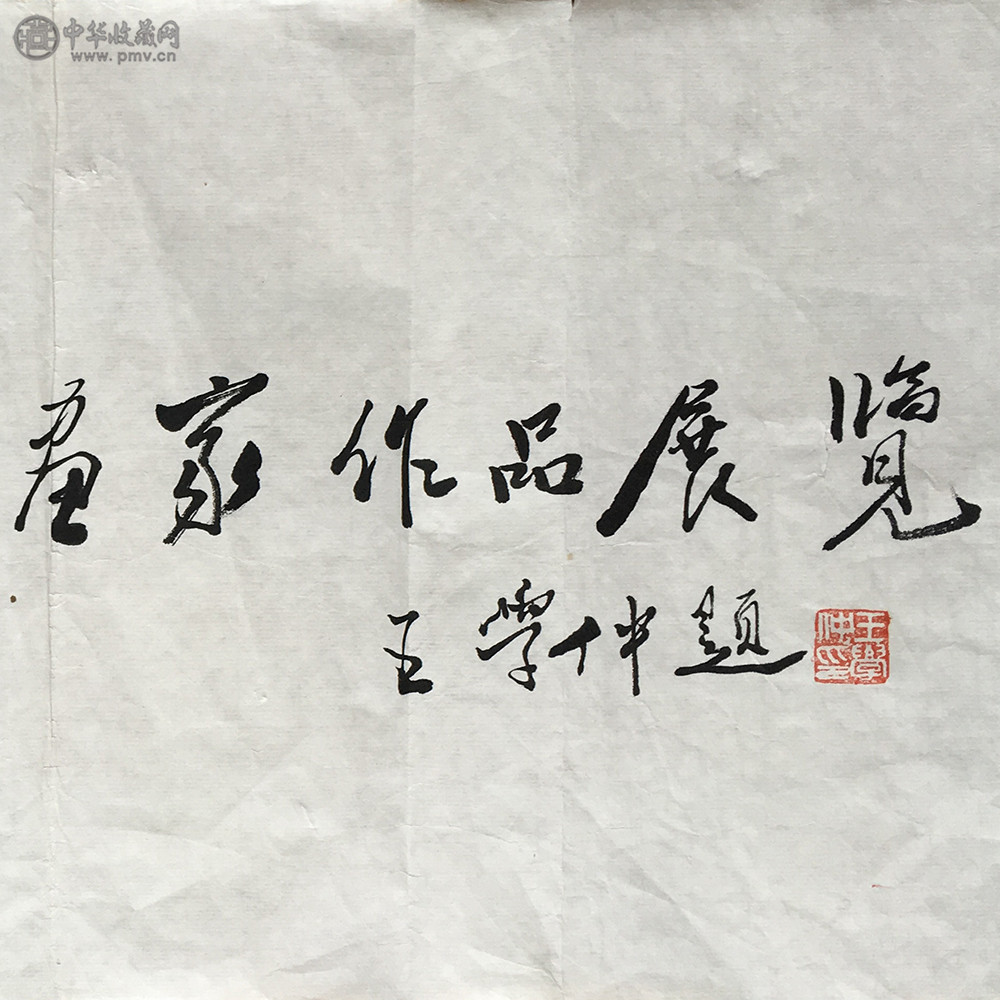 中华收藏网
www.pmv.cn
畫家作品展覽
王學仲題
王學仲印